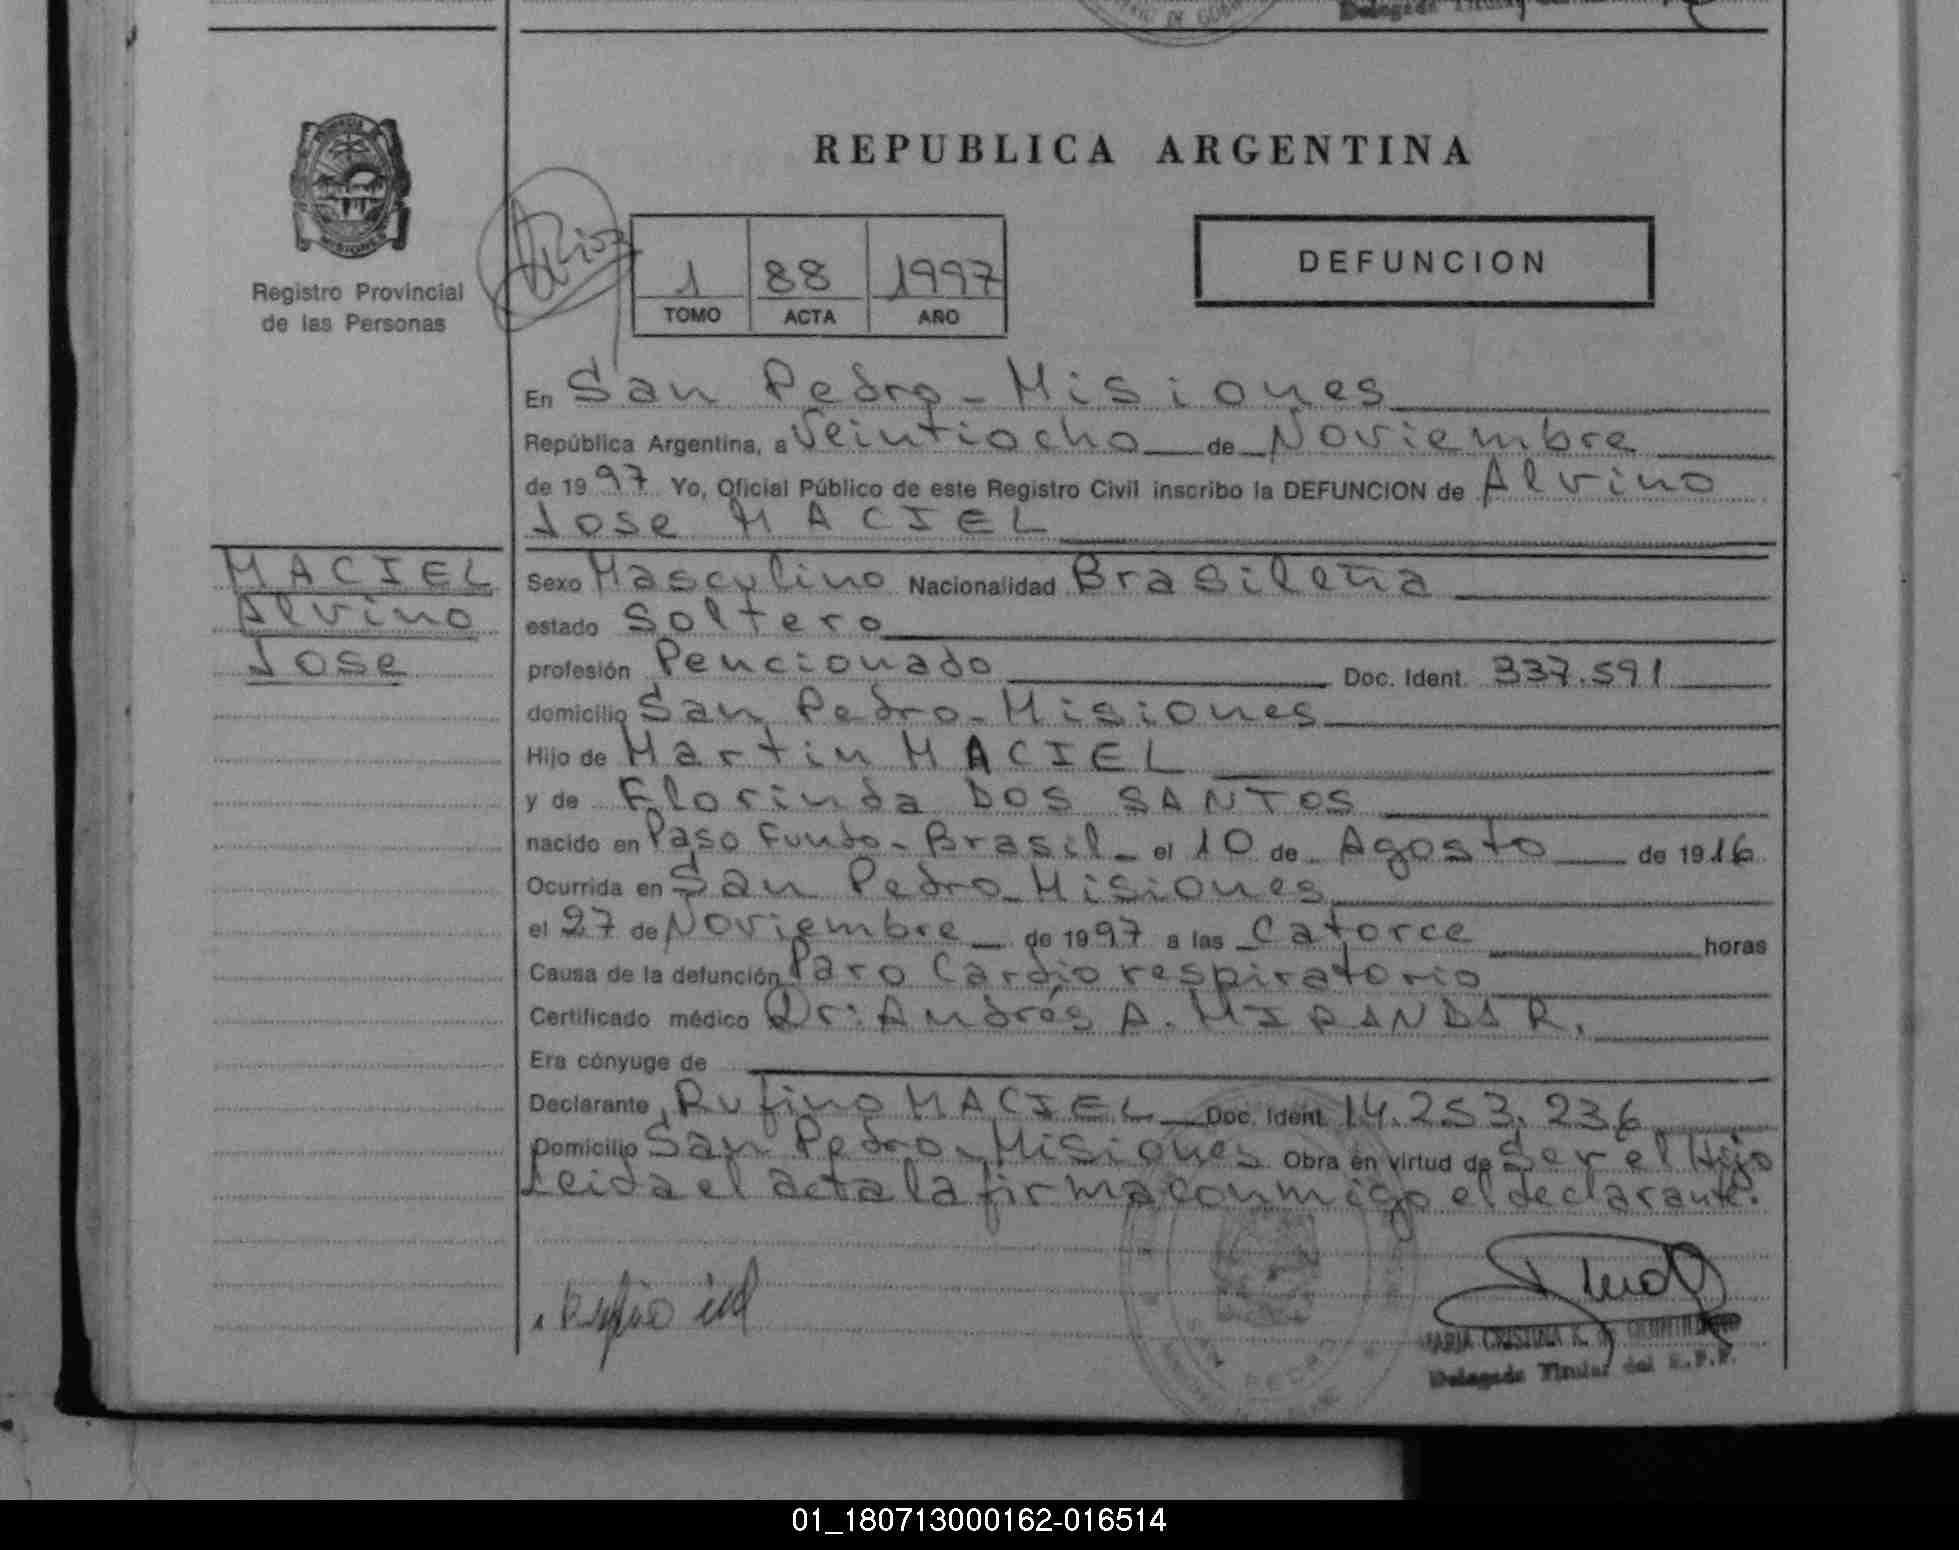 REPUBLICA ARGENTINA
Registro Provincial
de las Personas
1 88 1997
TOMO ACTA AÑO
DEFUNCION
En San Pedro - Misiones
República Argentina, a Veintiocho de Noviembre
de 1997 Yo, Oficial Público de este Registro Civil inscribo la DEFUNCION de Alvino
Jose MACIEL
MACIEL
Alvino
Jose
Sexo Masculino Nacionalidad Brasileña
estado Soltero
profesión Pencionado Doc. Ident. 337.591
domicilio San Pedro - Misiones
Hijo de Martin MACIEL
y de Florinda DOS SANTOS
nacido en Paso Fundo - Brasil - el 10 de Agosto de 1916
Ocurrida en San Pedro - Misiones
el 27 de Noviembre de 1997 a las Catorce horas
Causa de la defunción Paro Cardio respiratorio
Certificado médico Dr: Andrés A. MIRANDA R.
Era cónyuge de
Declarante, Rufino MACIEL Doc. Ident. 14.253.236
Domicilio San Pedro - Misiones Obra en virtud de Ser el Hijo
Leida el acta la firma conmigo el declarante.
MARIA CRISTINA
Delegada Titular del R.P.P.
01_180713000162-016514